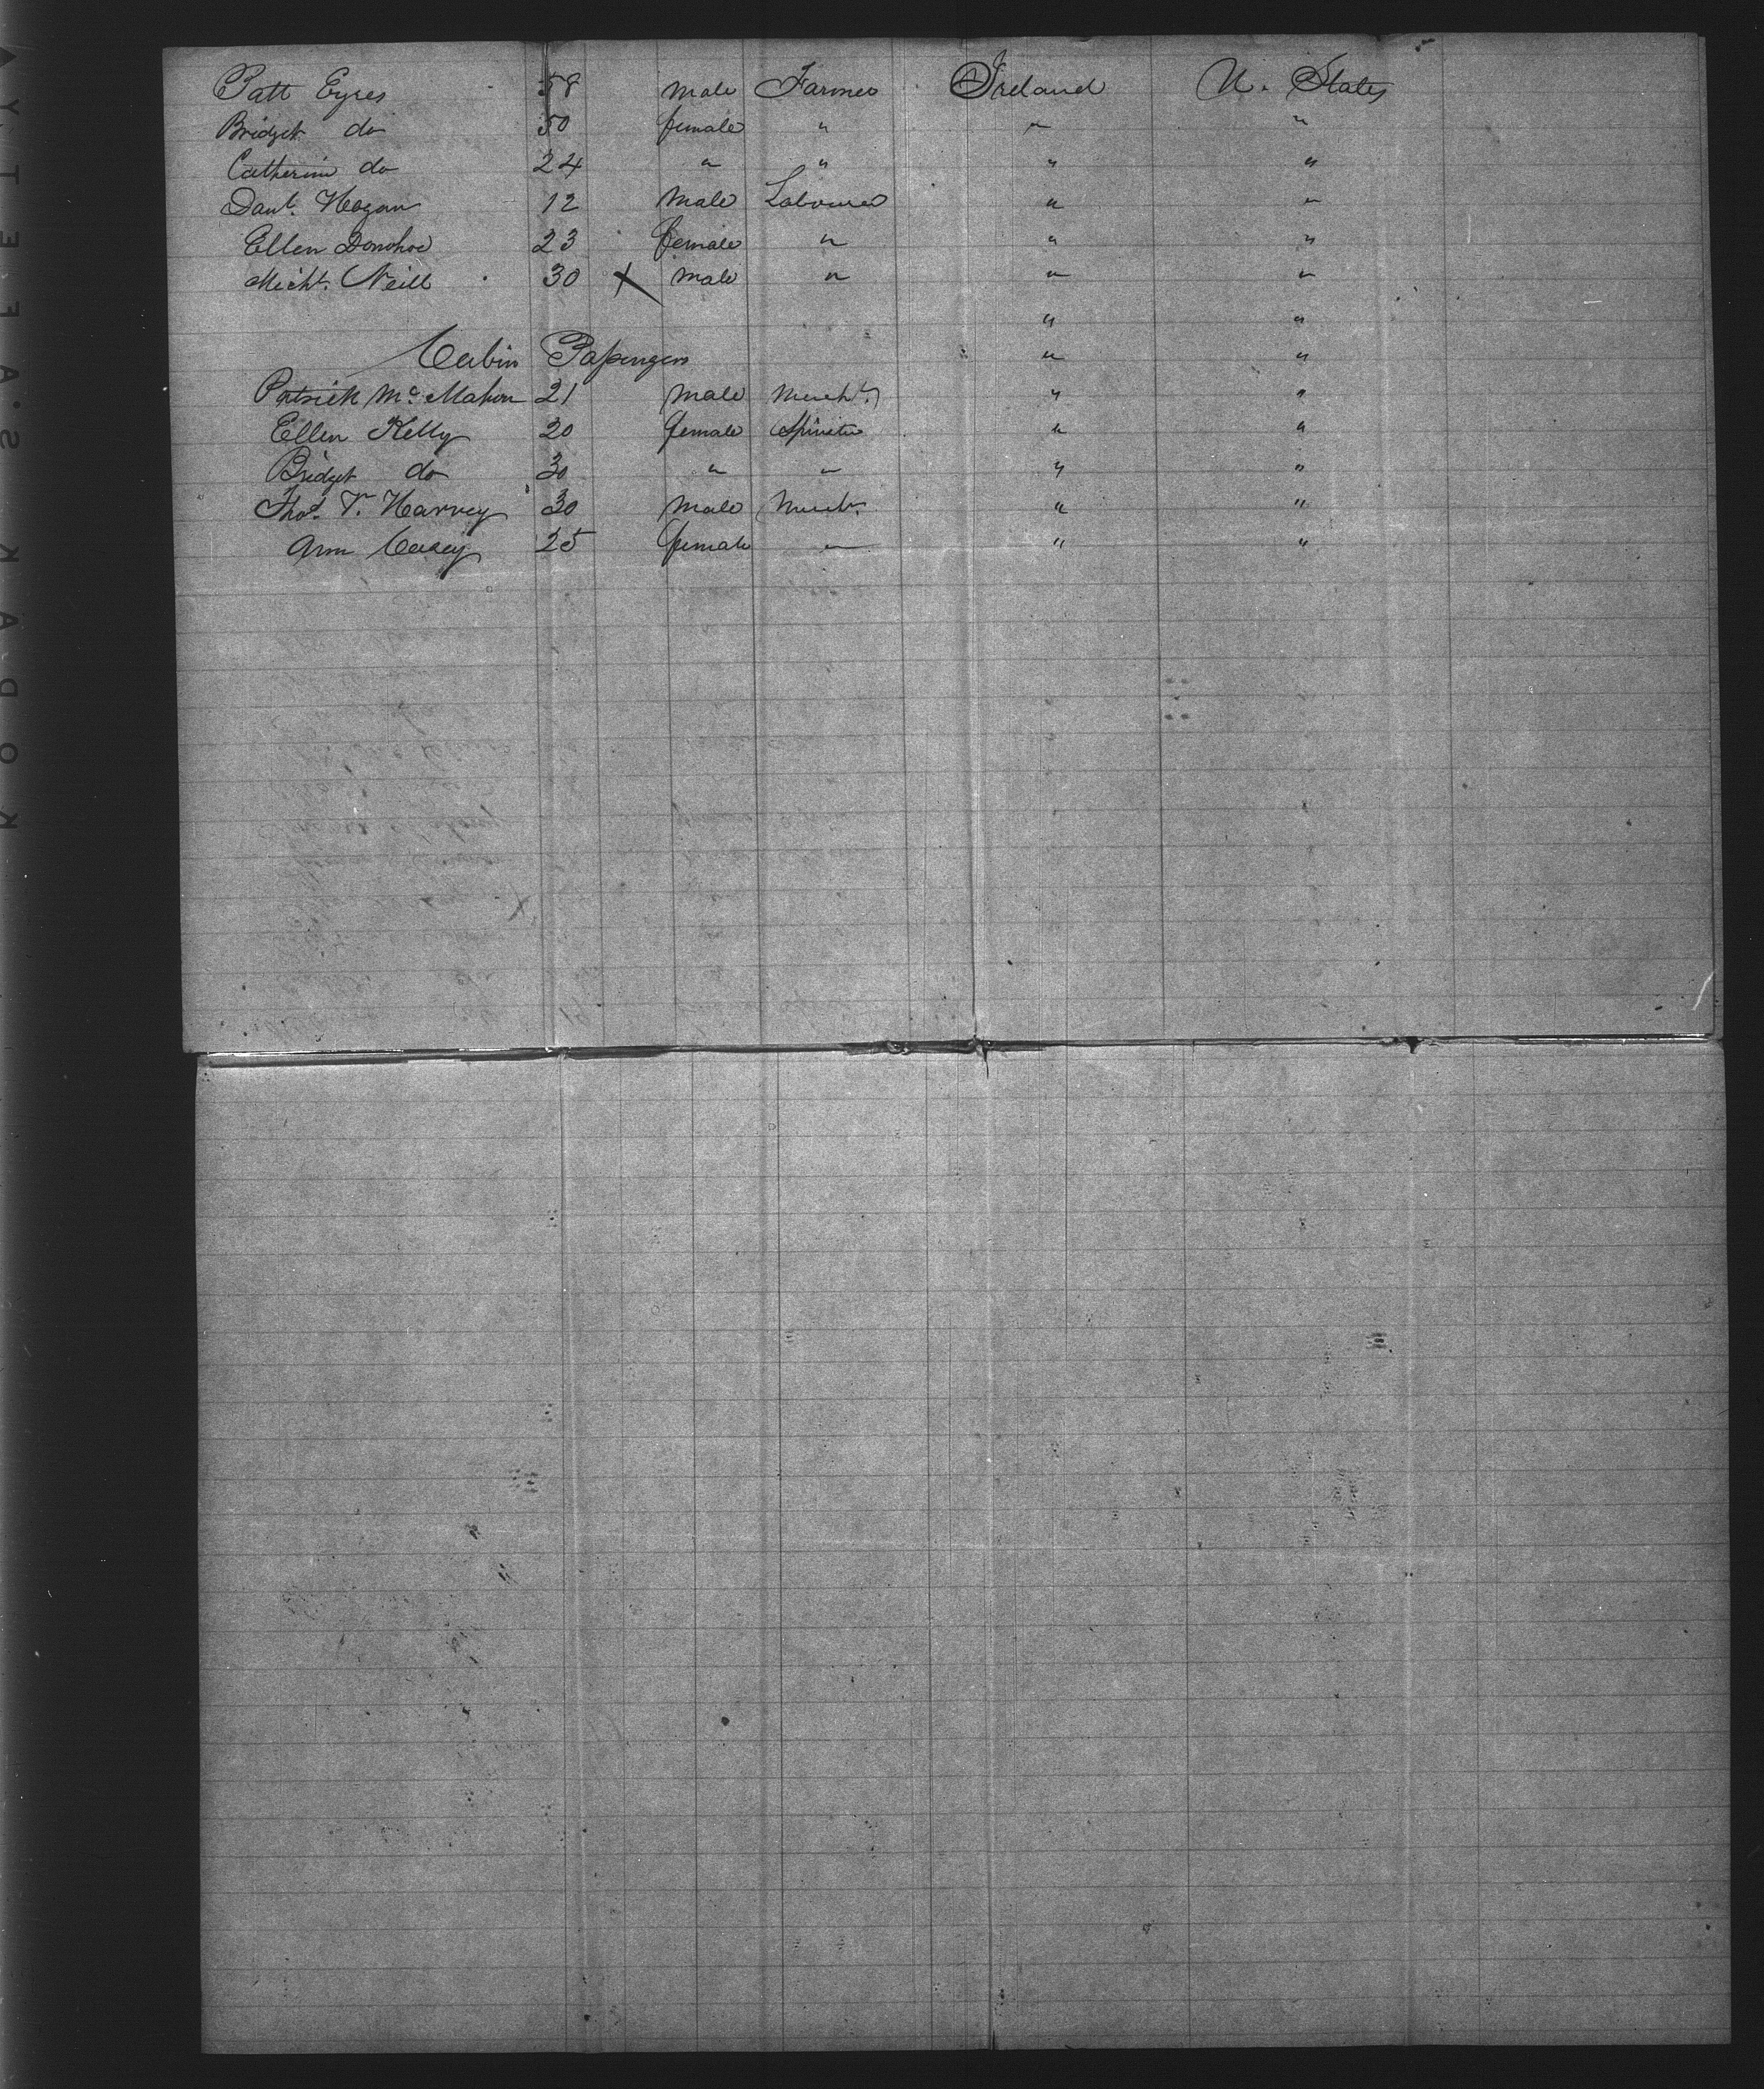 Patt Eyres 58 male Farmer Ireland U. States
Bridget do 50 female " " "
Catherine do 24 " " " "
Danl. Hogan 12 male Labourer " "
Ellen Donohoe 23 female " " "
Michl. Neill 30 X male " " "
" "
Cabin Passengers " "
Patrick McMahon 21 male Mercht. " "
Ellen Kelly 20 female Spinster " "
Bridget do 30 " " " "
Thos. T. Harvey 30 male Mercht. " "
Ann Casey 25 female " " "
KODAK·SAFETY